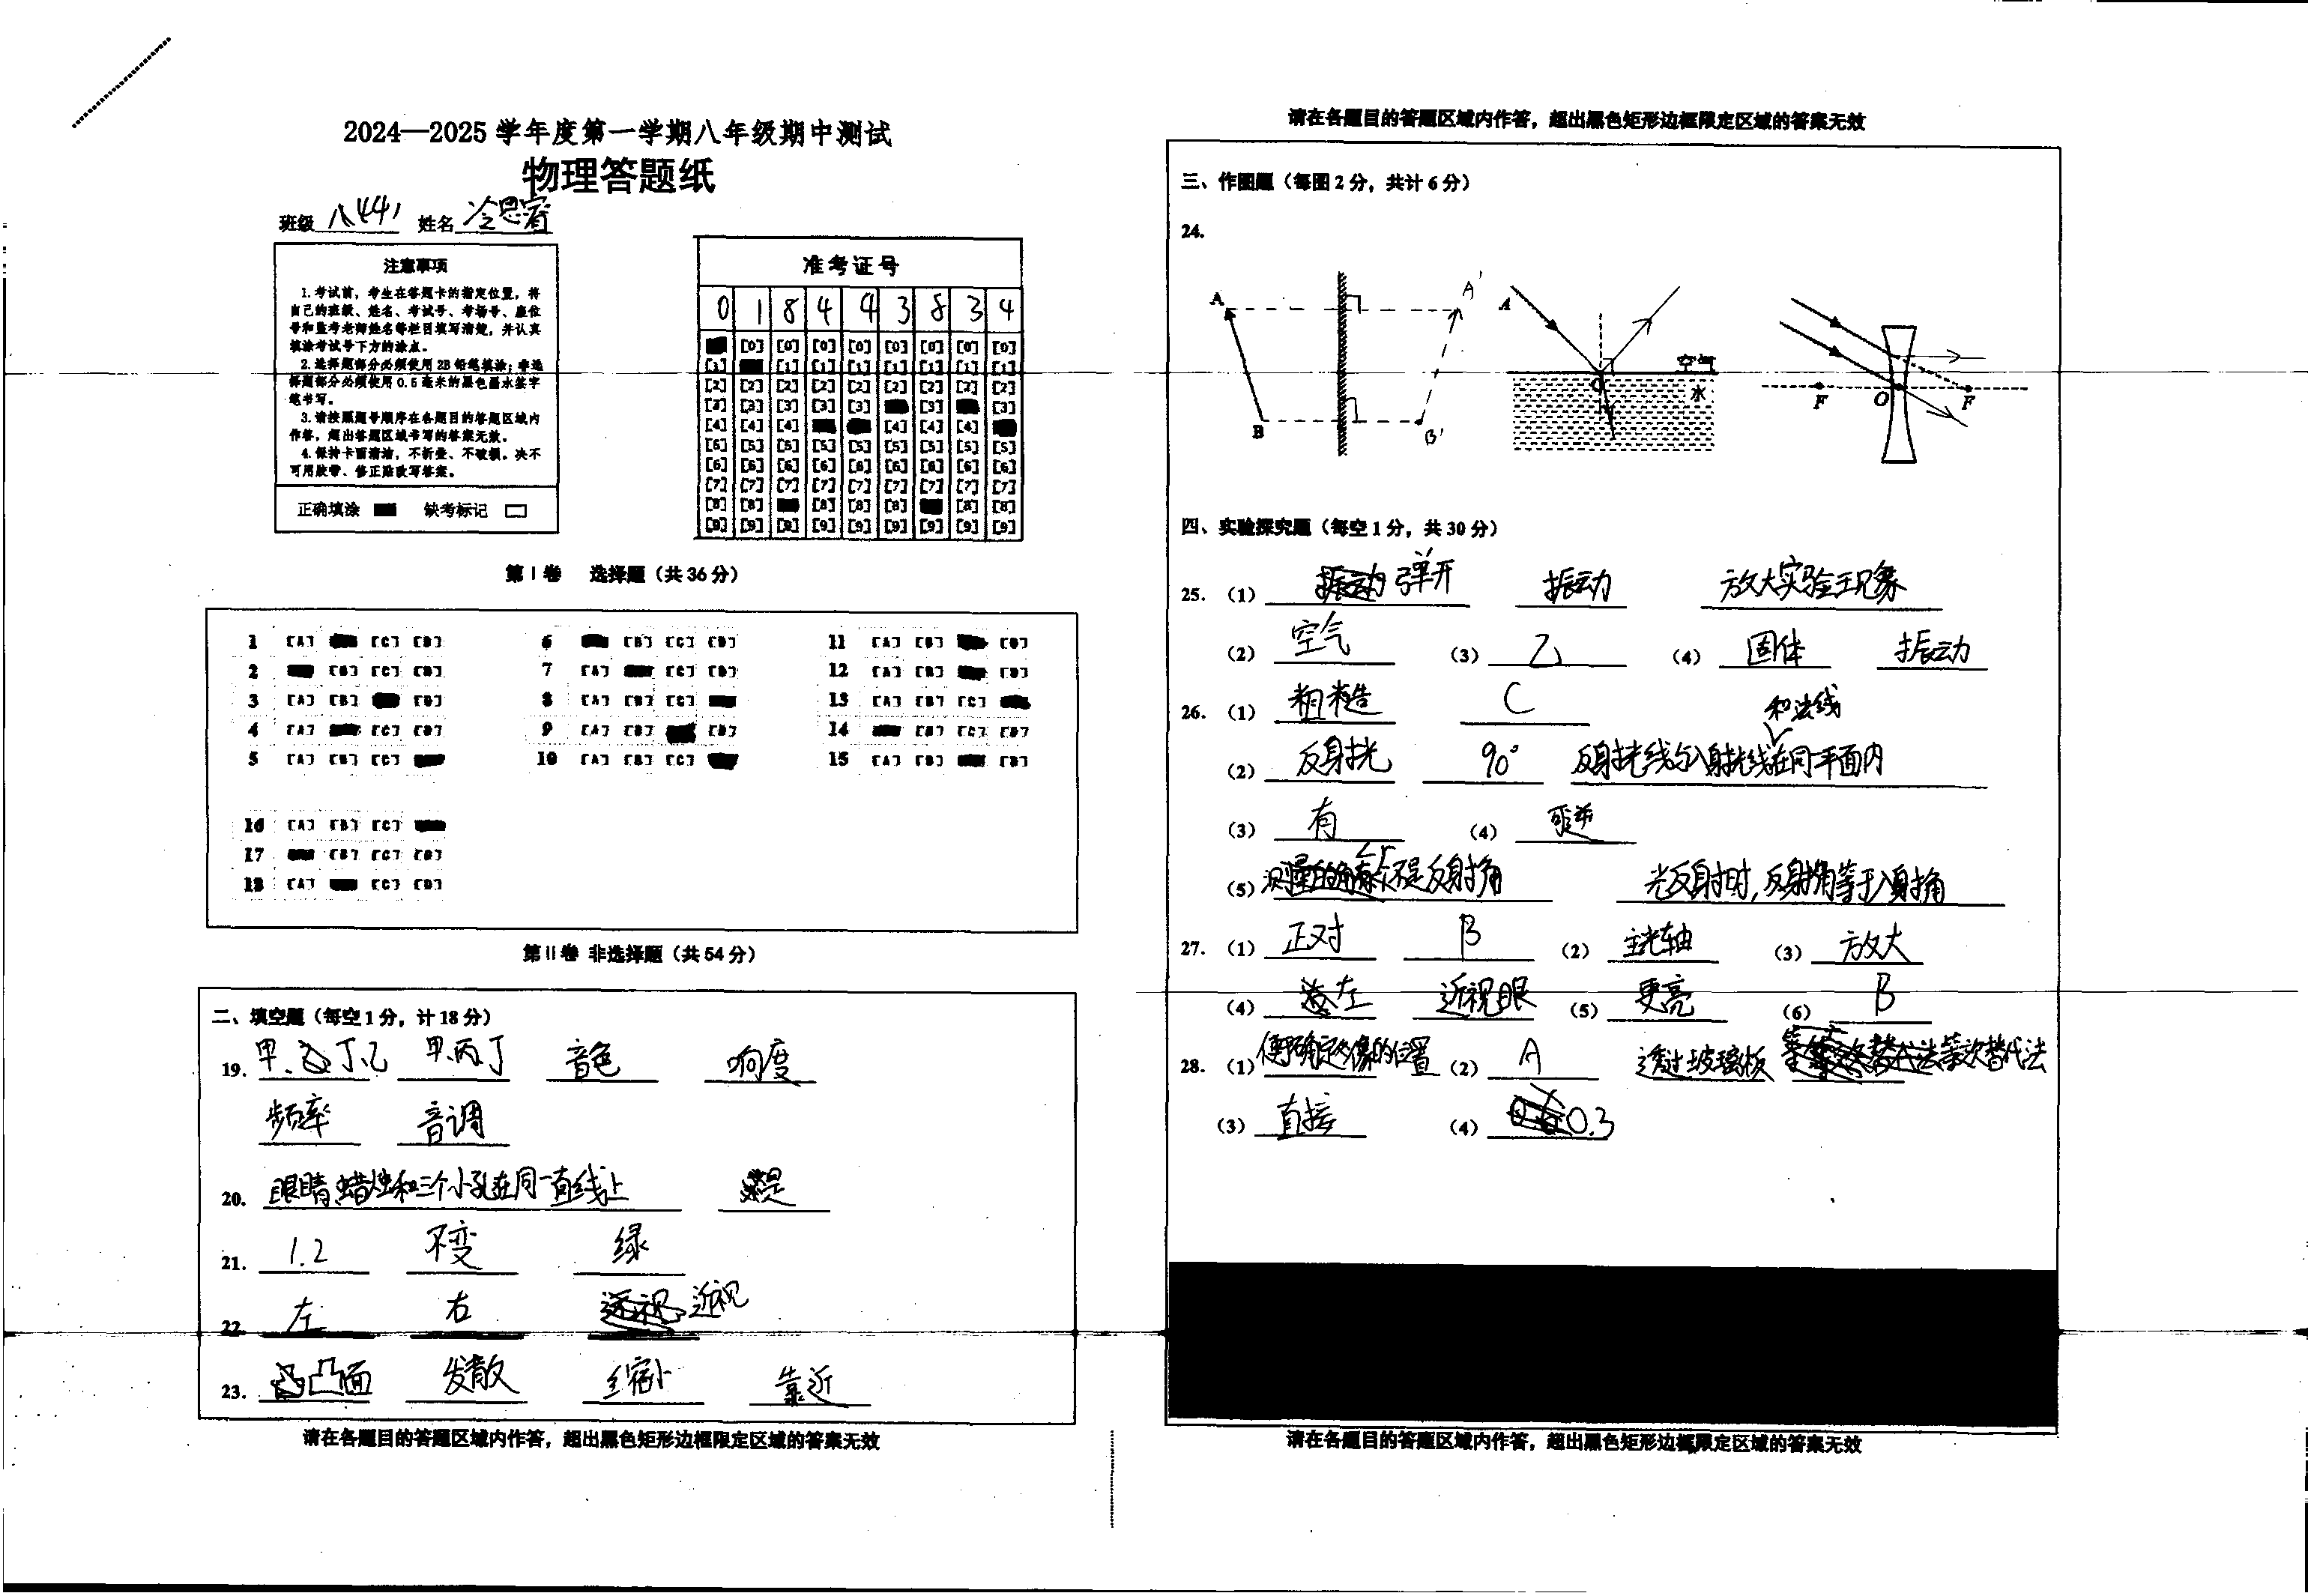 2024—2025 学年度第一学期八年级期中测试
物理答题纸
班级 八(44) 姓名 冷思睿
注意事项
1.考试前，考生在答题卡的指定位置，将
自己的班级、姓名、考试号、考场号、座位
号和监考老师姓名等栏目填写清楚，并认真
填涂考试号下方的涂点。
2.选择题部分必须使用 2B 铅笔填涂；非选
择题部分必须使用 0.5 毫米的黑色墨水签字
笔书写。
3.请按照题号顺序在各题目的答题区域内
作答，超出答题区域书写的答案无效。
4.保持卡面清洁，不折叠、不破损。决不
可用胶带、修正贴改写答案。
正确填涂 缺考标记
准考证号
0 1 8 4 4 3 8 3 4
[0] [0] [0] [0] [0] [0] [0] [0]
[1] [1] [1] [1] [1] [1] [1] [1]
[2] [2] [2] [2] [2] [2] [2] [2] [2]
[3] [3] [3] [3] [3] [3] [3]
[4] [4] [4] [4] [4] [4]
[5] [5] [5] [5] [5] [5] [5] [5] [5]
[6] [6] [6] [6] [6] [6] [6] [6] [6]
[7] [7] [7] [7] [7] [7] [7] [7] [7]
[8] [8] [8] [8] [8] [8] [8]
[9] [9] [9] [9] [9] [9] [9] [9] [9]
第Ⅰ卷 选择题（共 36 分）
1 [A] [C] [D] 6 [B] [C] [D] 11 [A] [B] [D]
2 [B] [C] [D] 7 [A] [C] [D] 12 [A] [B] [D]
3 [A] [B] [D] 8 [A] [B] [C] 13 [A] [B] [C]
4 [A] [C] [D] 9 [A] [B] [D] 14 [B] [C] [D]
5 [A] [B] [C] 10 [A] [B] [C] 15 [A] [B] [D]
16 [A] [B] [C]
17 [B] [C] [D]
18 [A] [C] [D]
第Ⅱ卷 非选择题（共 54 分）
二、填空题（每空 1 分，计 18 分）
19. 甲、丁、乙 甲、丙、丁 音色 响度
频率 音调
20. 眼睛蜡烛和三个小孔在同一直线上 是
21. 1.2 不变 绿
22. 左 右 近视
23. 凸面 发散 缩小 靠近
请在各题目的答题区域内作答，超出黑色矩形边框限定区域的答案无效
请在各题目的答题区域内作答，超出黑色矩形边框限定区域的答案无效
三、作图题（每图 2 分，共计 6 分）
24.
A A' B B'
A O 空气 水
F O F
四、实验探究题（每空 1 分，共 30 分）
25.（1） 弹开 振动 放大实验现象
（2） 空气 （3） 乙 （4） 固体 振动
26.（1） 粗糙 C
（2） 反射光 90° 反射光线与入射光线和法线在同平面内
（3） 有 （4）
（5） 不是反射角 光反射时，反射角等于入射角
27.（1） 正对 B （2） 主光轴 （3） 放大
（4） 左 近视眼 （5） 更亮 （6） B
28.（1） 便于确定像的位置 （2） A 透过玻璃板 等效替代法
（3） 直接 （4） 0.3
请在各题目的答题区域内作答，超出黑色矩形边框限定区域的答案无效